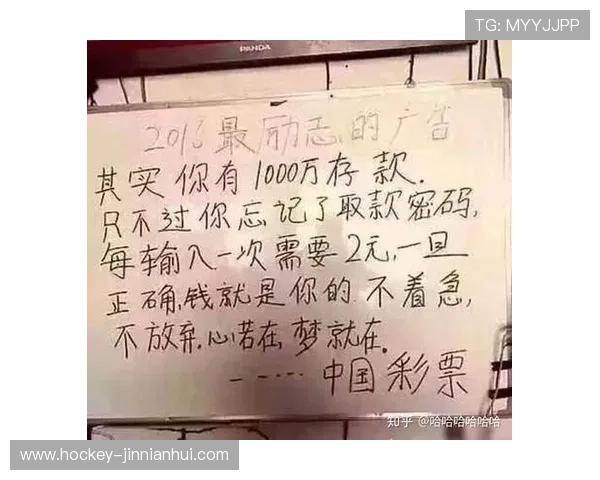 TG: MYYJJPP
PANDA
2016最励志的广告
其实你有1000万存款.
只不过你忘记了取款密码,
每输入一次需要2元,一旦
正确,钱就是你的.不着急,
不放弃.心若在,梦就在.
-----中国彩票
知乎 @哈哈哈哈哈哈
www.hockey-jinnianhui.com